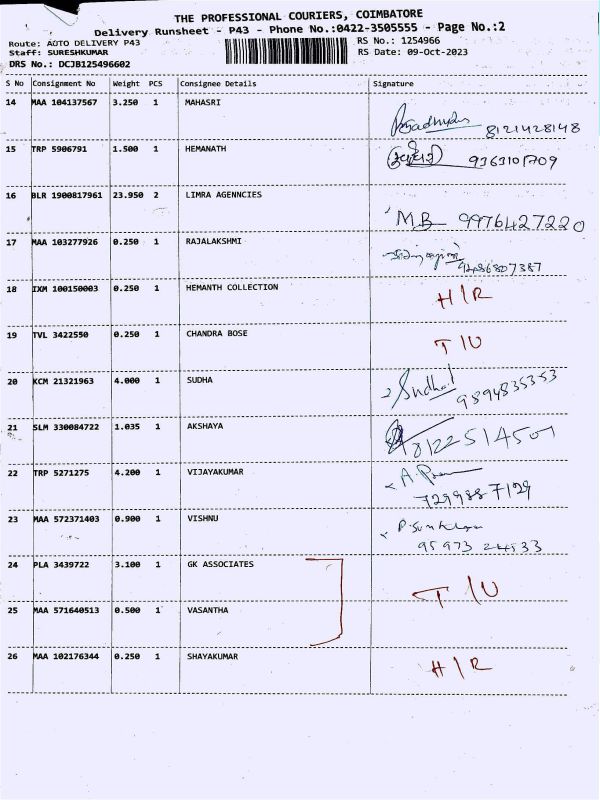 THE PROFESSIONAL COURIERS, COIMBATORE
Delivery Runsheet - P43 - Phone No.:0422-3505555 - Page No.:2
Route: AUTO DELIVERY P43 RS No.: 1254966
Staff: SURESHKUMAR RS Date: 09-Oct-2023
DRS No.: DCJB125496602
S No Consignment No Weight PCS Consignee Details Signature
14 MAA 104137567 3.250 1 MAHASRI
8121428148
15 TRP 5906791 1.500 1 HEMANATH
9363101709
16 BLR 1900817961 23.950 2 LIMRA AGENNCIES
MB 9976427220
17 MAA 103277926 0.250 1 RAJALAKSHMI
9486807387
18 IXM 100150003 0.250 1 HEMANTH COLLECTION
H/R
19 TVL 3422550 0.250 1 CHANDRA BOSE
T/U
20 KCM 21321963 4.000 1 SUDHA
9894835353
21 SLM 330084722 1.035 1 AKSHAYA
8122514507
22 TRP 5271275 4.200 1 VIJAYAKUMAR
7299887129
23 MAA 572371403 0.900 1 VISHNU
95973 24533
24 PLA 3439722 3.100 1 GK ASSOCIATES
T/U
25 MAA 571640513 0.500 1 VASANTHA
26 MAA 102176344 0.250 1 SHAYAKUMAR
H/R